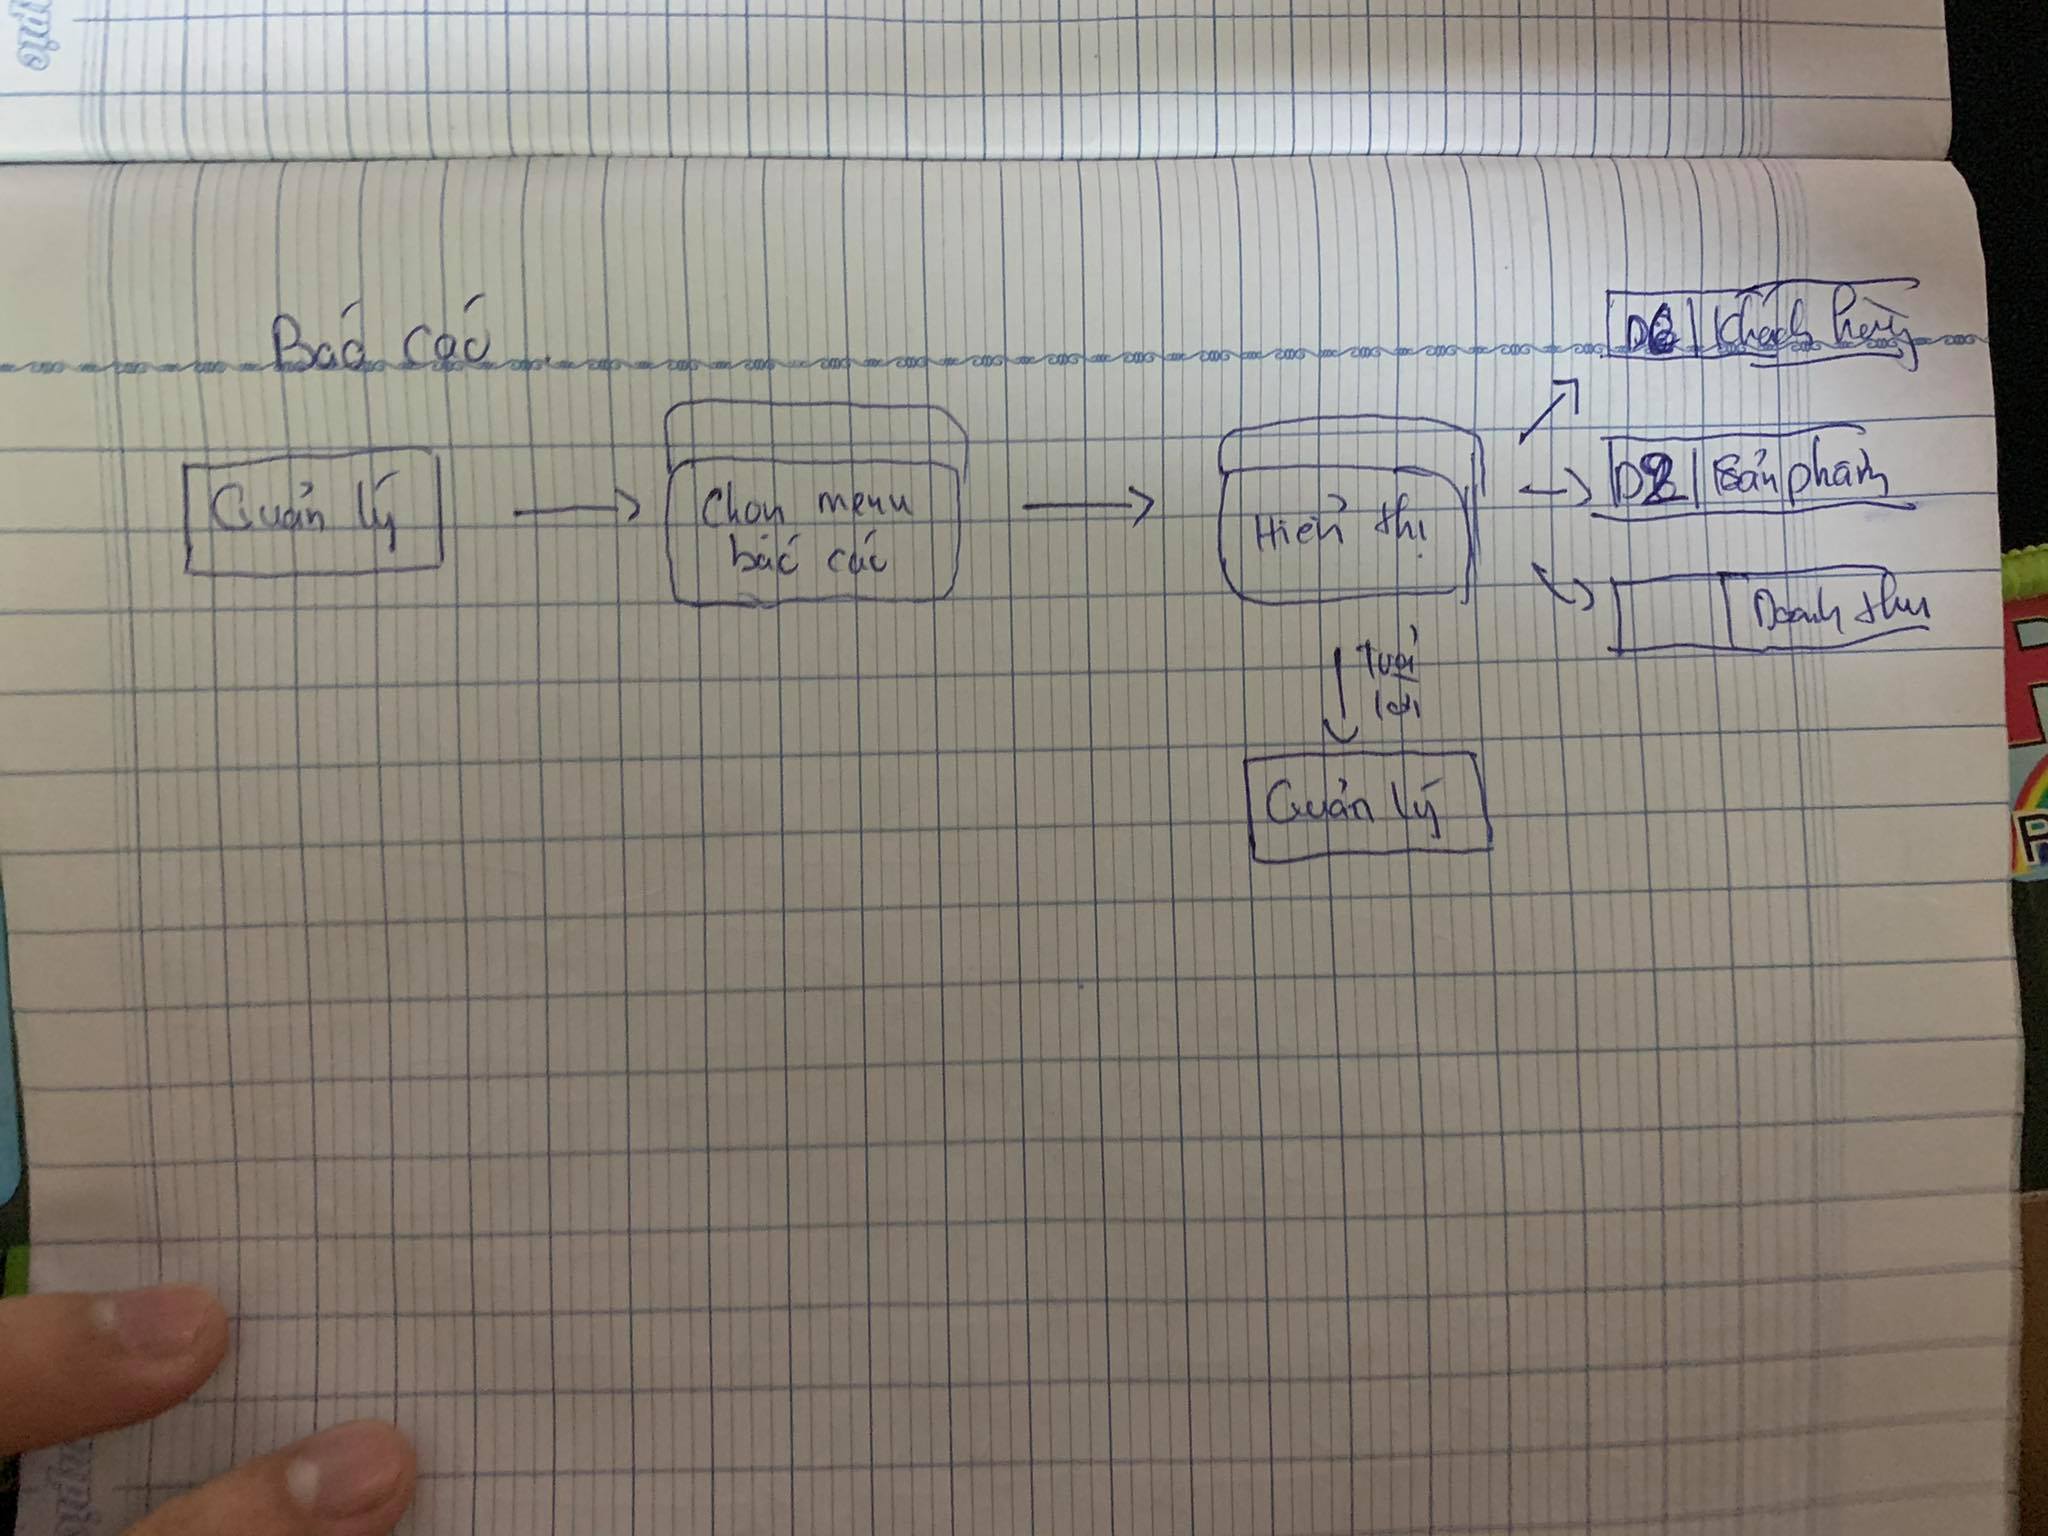 Báo cáo
Quản lý
Chọn menu
báo cáo
Hiển thị
Khách hàng
D2 Sản phẩm
Doanh thu
lại
Quản lý